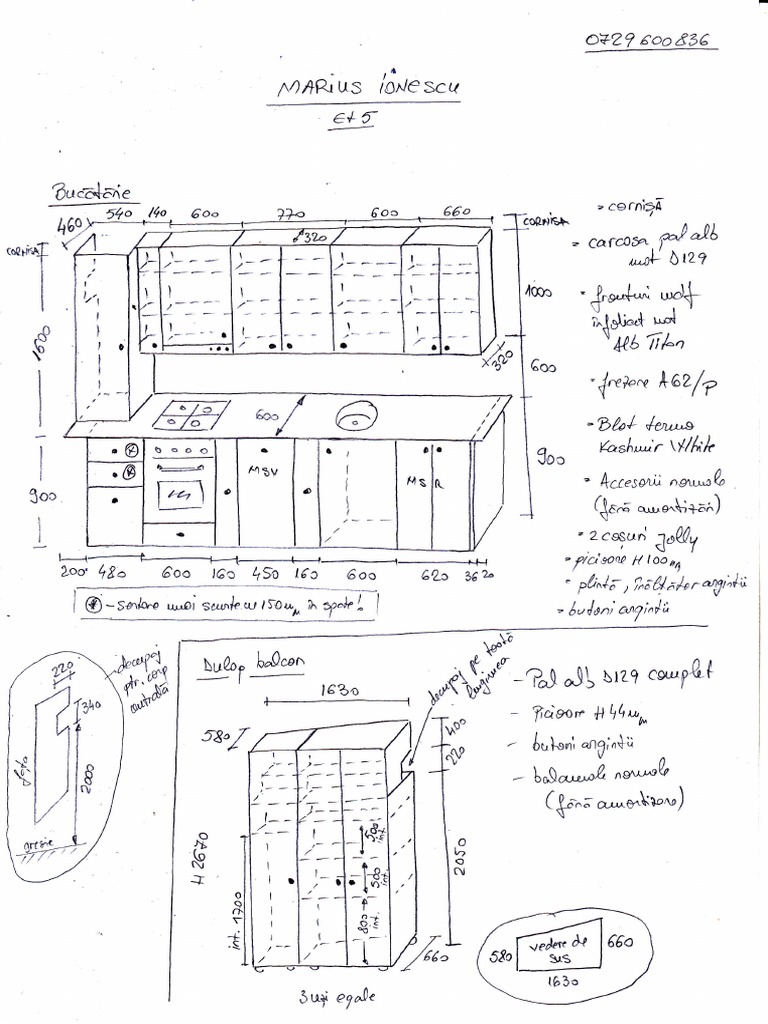 0729600836
MARIUS IONESCU
Et 5
Bucătărie
460 540 140 600 770 600 660
CORNISA
CORNISA
320
1000
1600
320
600
600
900
MSV
MS R
900
200 480 600 160 450 160 600 620 36 20
* - sertare mai scurte cu 150mm în spate!
- cornișă
- carcasa pal alb
mat D129
- fronturi mdf
infoliat mat
Alb Titan
- frezare A62/p
- Blat termo
Kashmir White
- Accesorii normale
(fără amortizări)
- 2 cosuri Jolly
- picioare H100mm
- plintă, înălțător argintii
- butoni argintii
220
decupaj
ptr. corp
centrală
340
față
2000
gresie
Dulap balcon
1630
decupaj pe toată
lungimea
580
400
220
H 2670
500 int.
500 int.
800 int.
int. 1700
2050
660
3 uși egale
- Pal alb D129 complet
- Picioare H44mm
- butoni argintii
- balamale normale
(fără amortizare)
580
vedere de
sus
660
1630